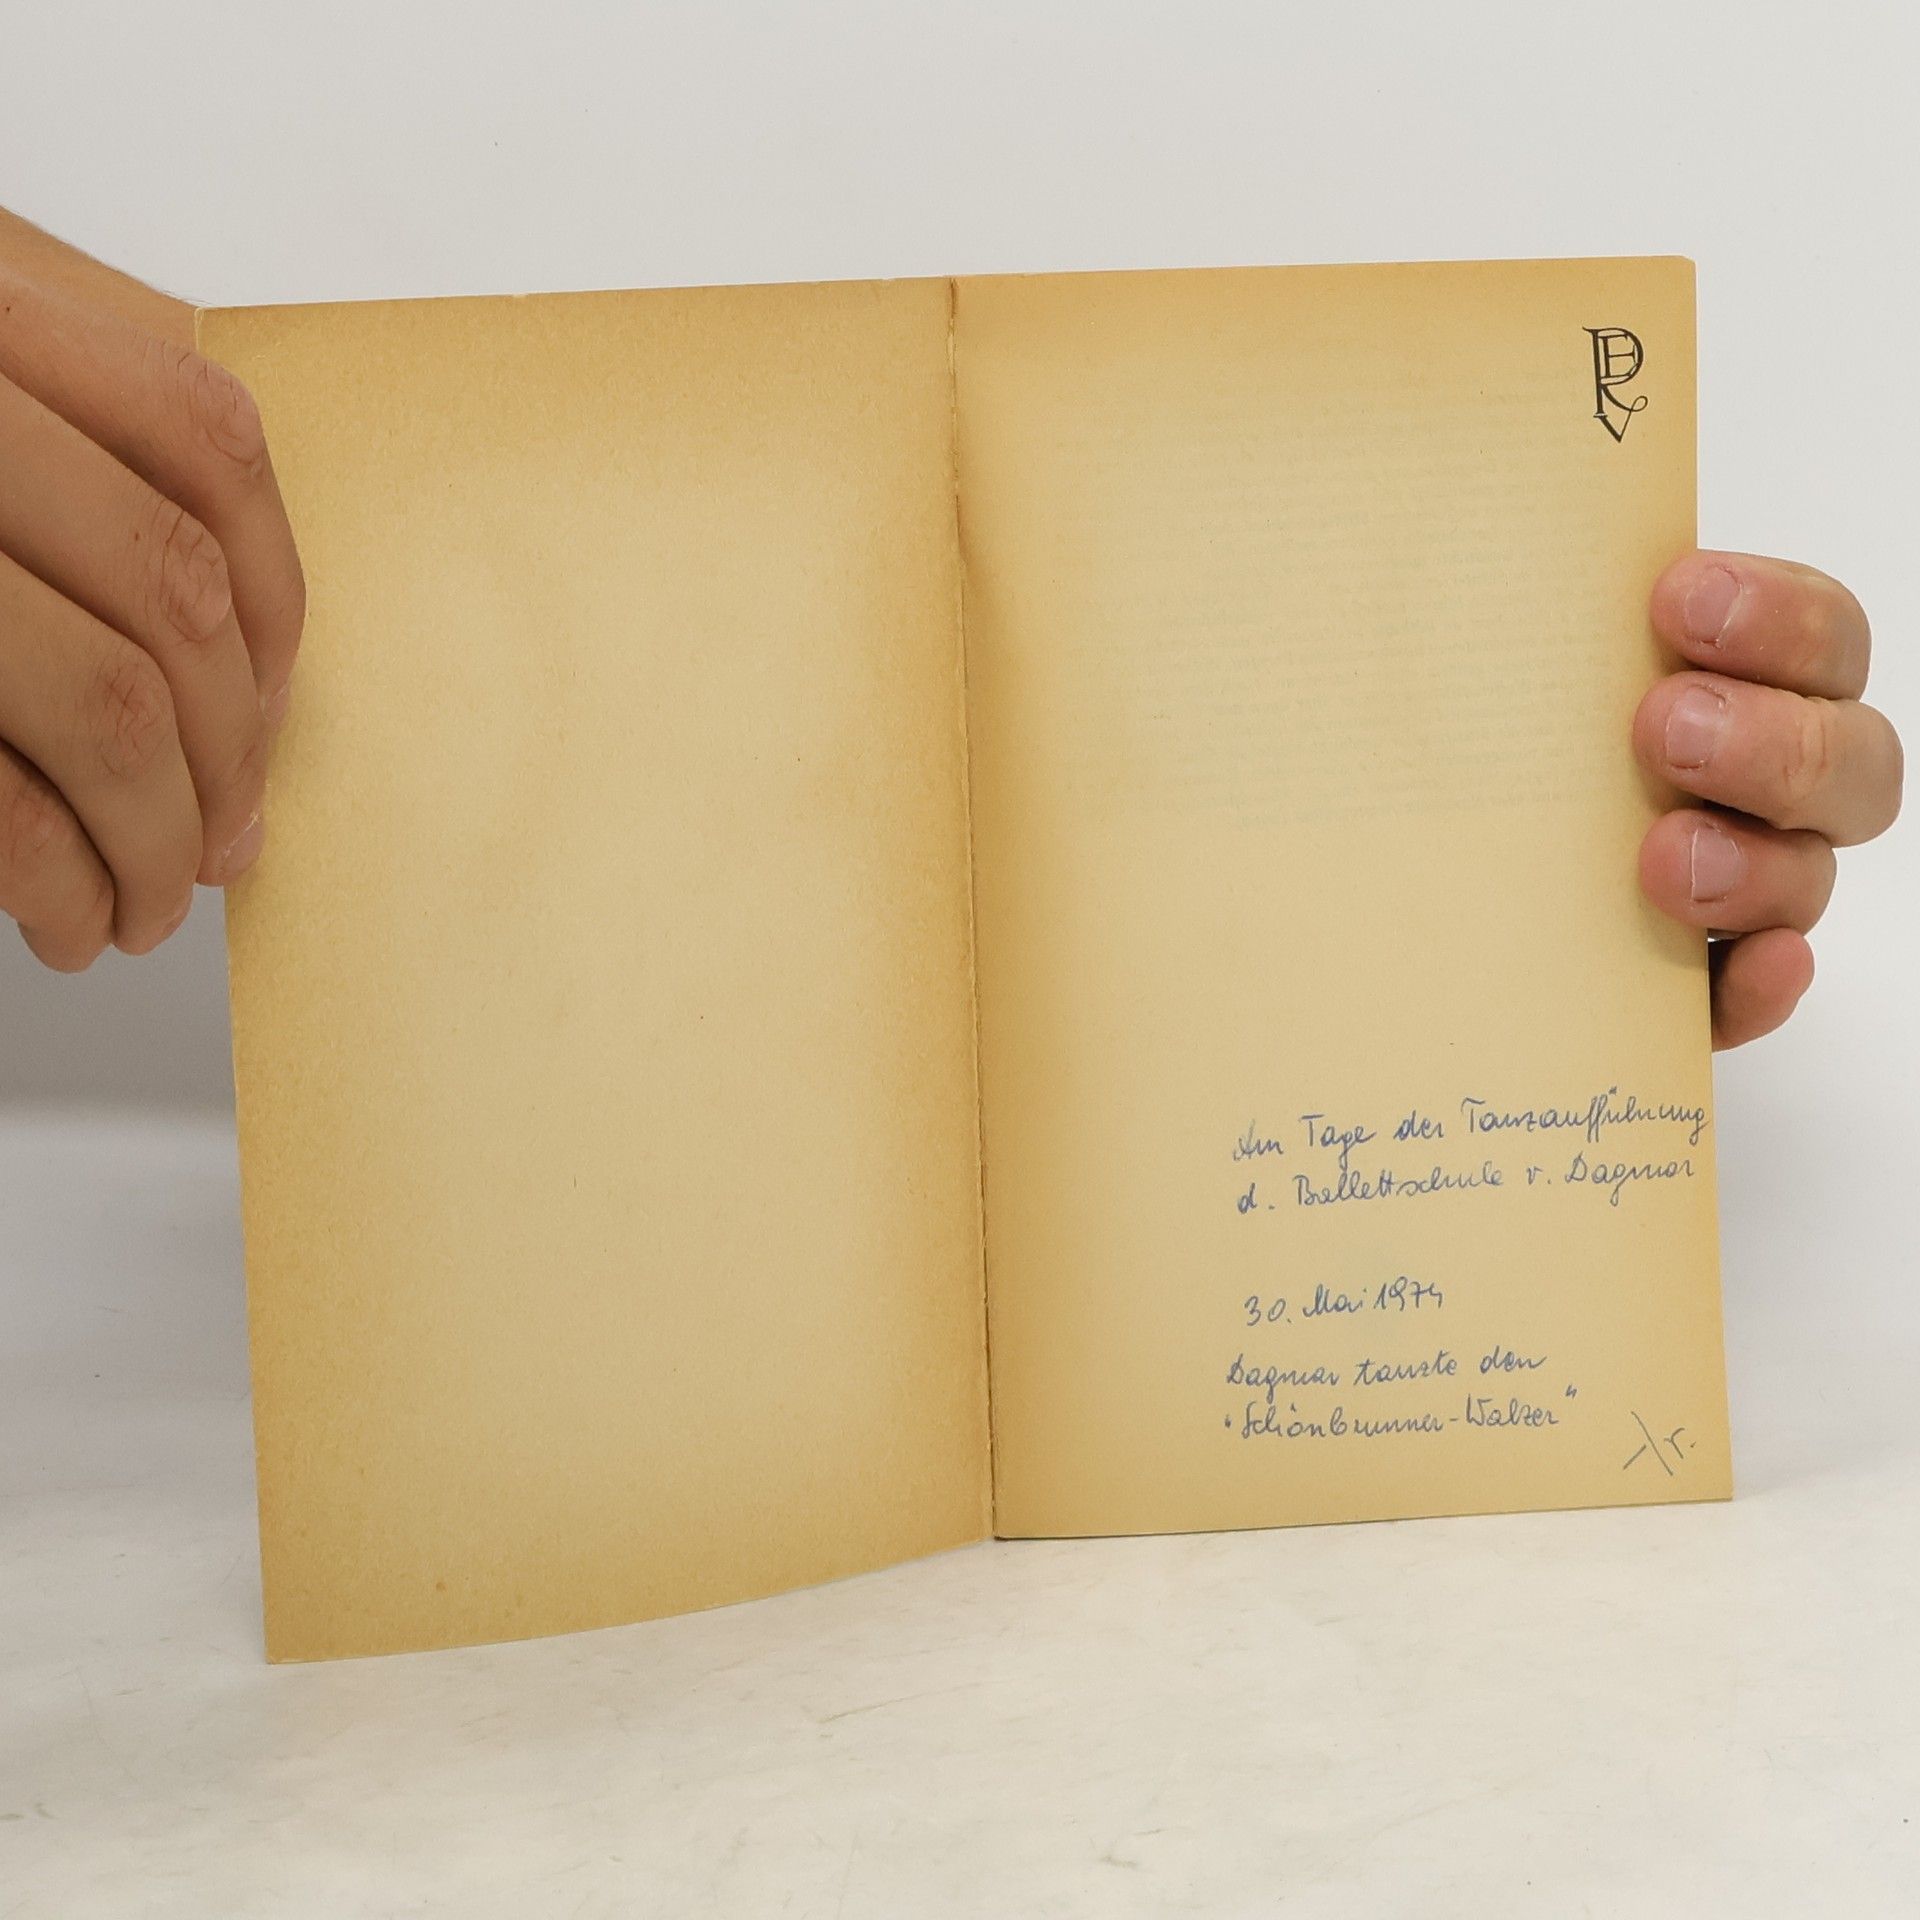 Am Tage der Tanzaufführung
d. Ballettschule v. Dagmar
30. Mai 1974
Dagmar tanzte den
"Schönbrunner-Walzer"